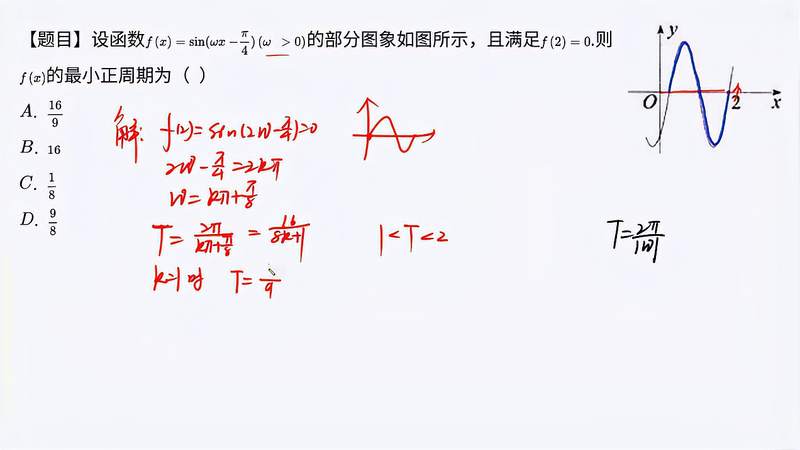 【题目】设函数f(x)=sin(ωx-π/4)(ω >0)的部分图象如图所示，且满足f(2)=0.则
f(x)的最小正周期为（ ）
A. 16/9
B. 16
C. 1/8
D. 9/8
解: f(2)=sin(2ω-π/4)=0
2ω-π/4=2kπ
ω=kπ+π/8
T=2π/(kπ+π/8)=16/(8k+1)
1<T<2
k=1时 T= /9
y
O
2
x
T=2π/|ω|